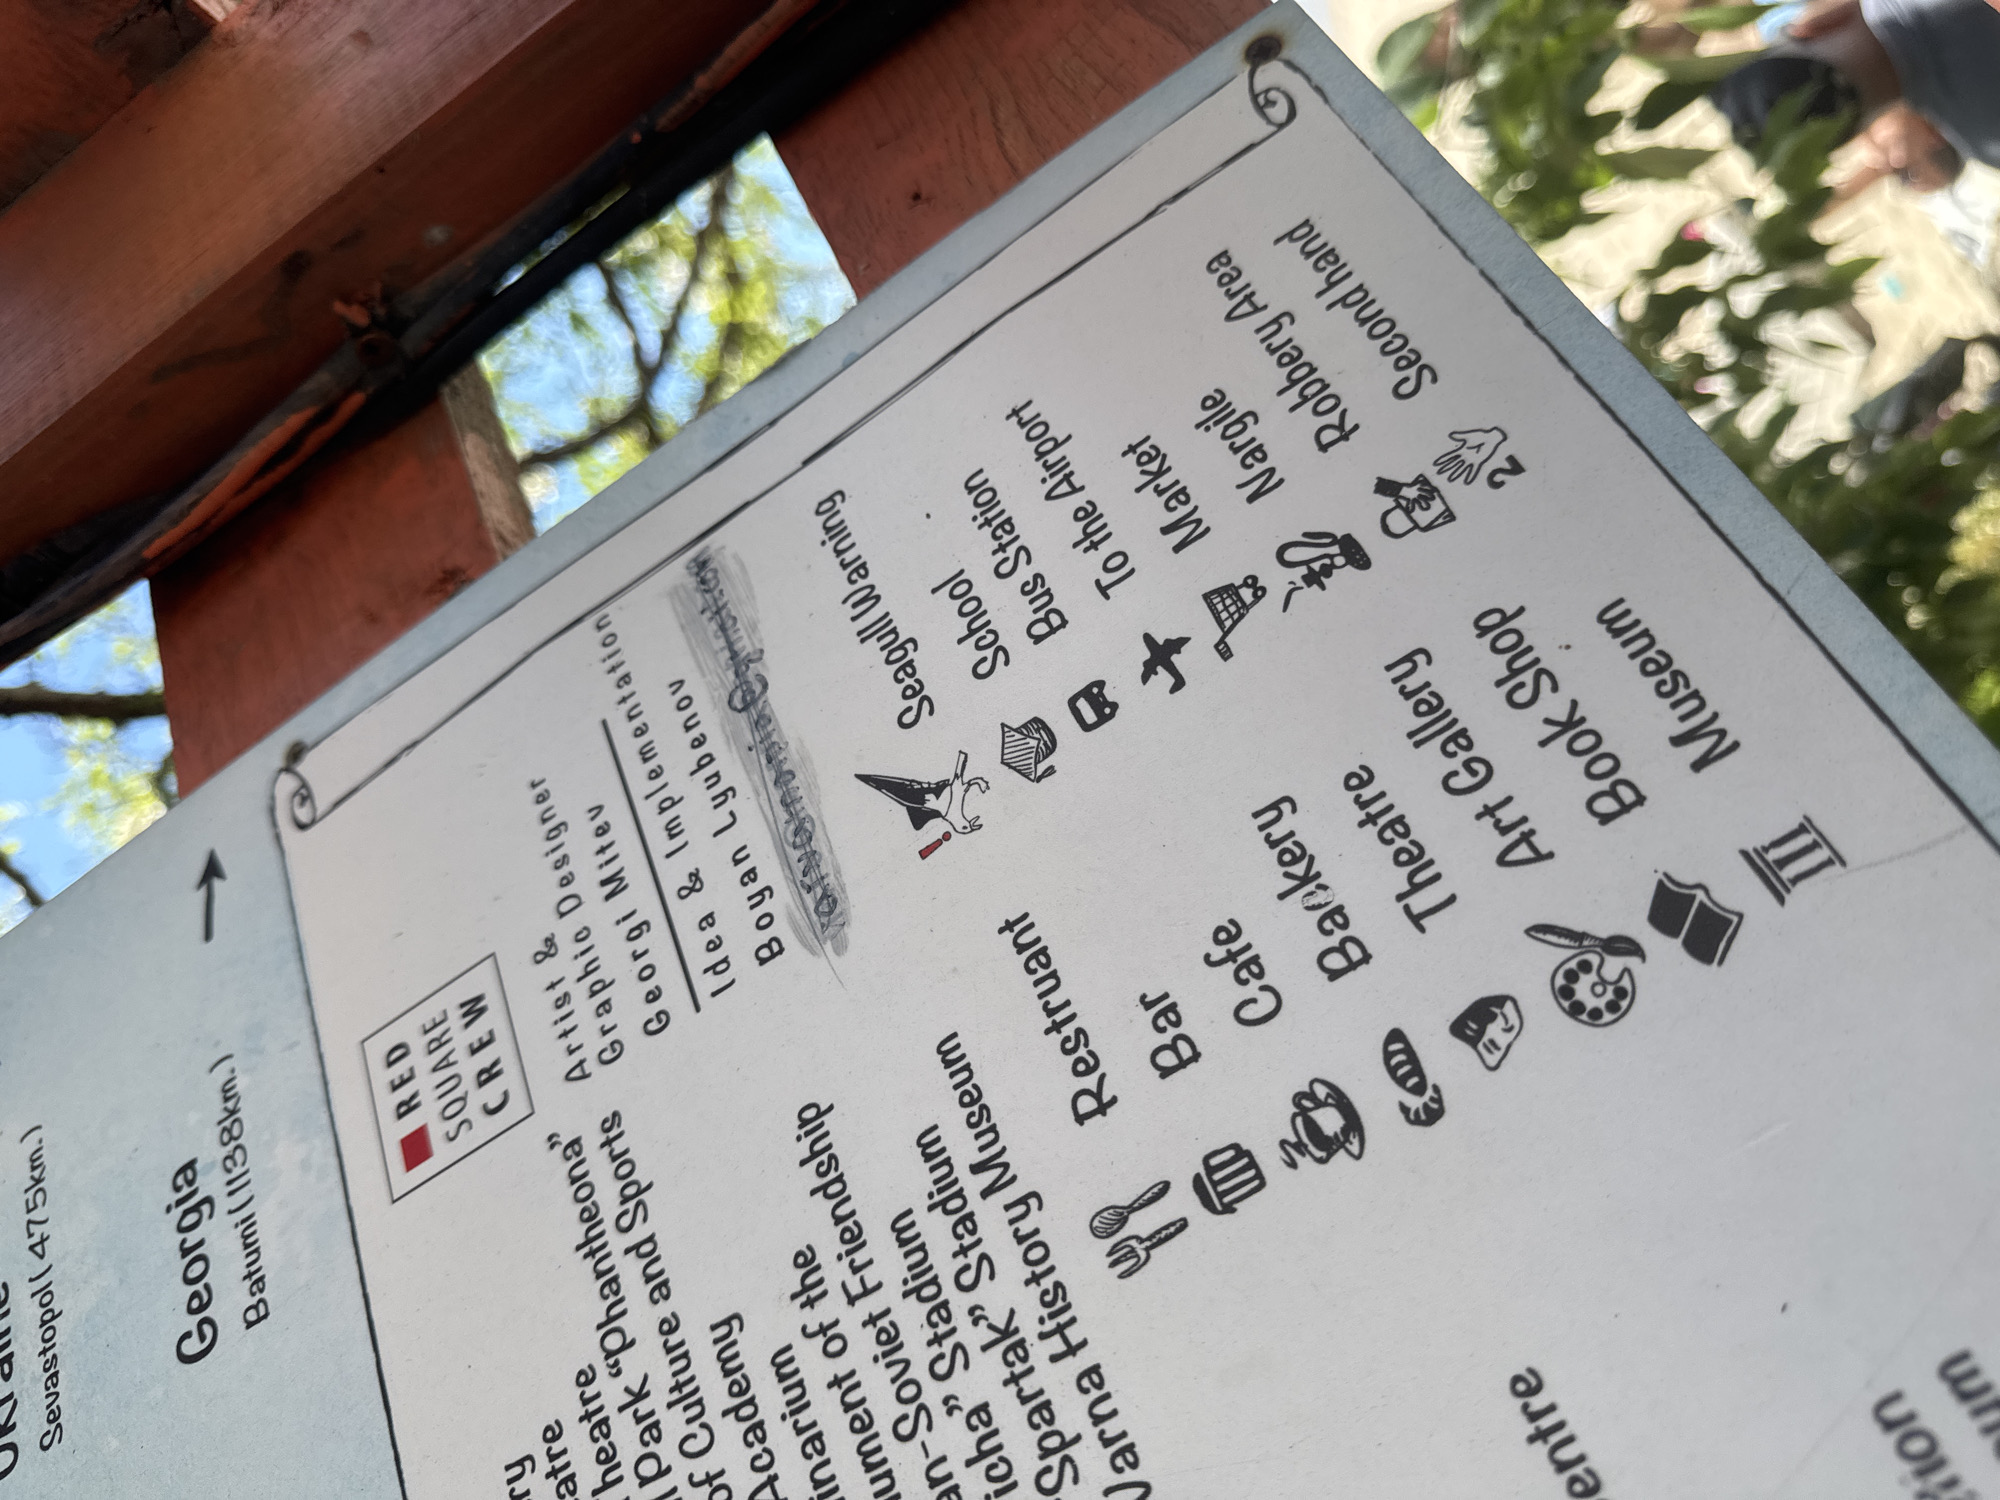 Sevastopol (475km.)
Georgia
Batumi (1138km.)
RED
SQUARE
CREW
Artist &
Graphic Designer
Georgi Mitev
Idea & Implementation
Boyan Lyubenov
Theatre
park “phantheona”
of Culture and Sports
Academy
of the
Soviet Friendship
Stadium
Spartak” Stadium
Varna History Museum
Restruant
Bar
Cafe
Backery
Theatre
Art Gallery
Book Shop
Museum
! Seagull Warning
School
Bus Station
To the Airport
Market
Nargile
Robbery Area
2 Second hand